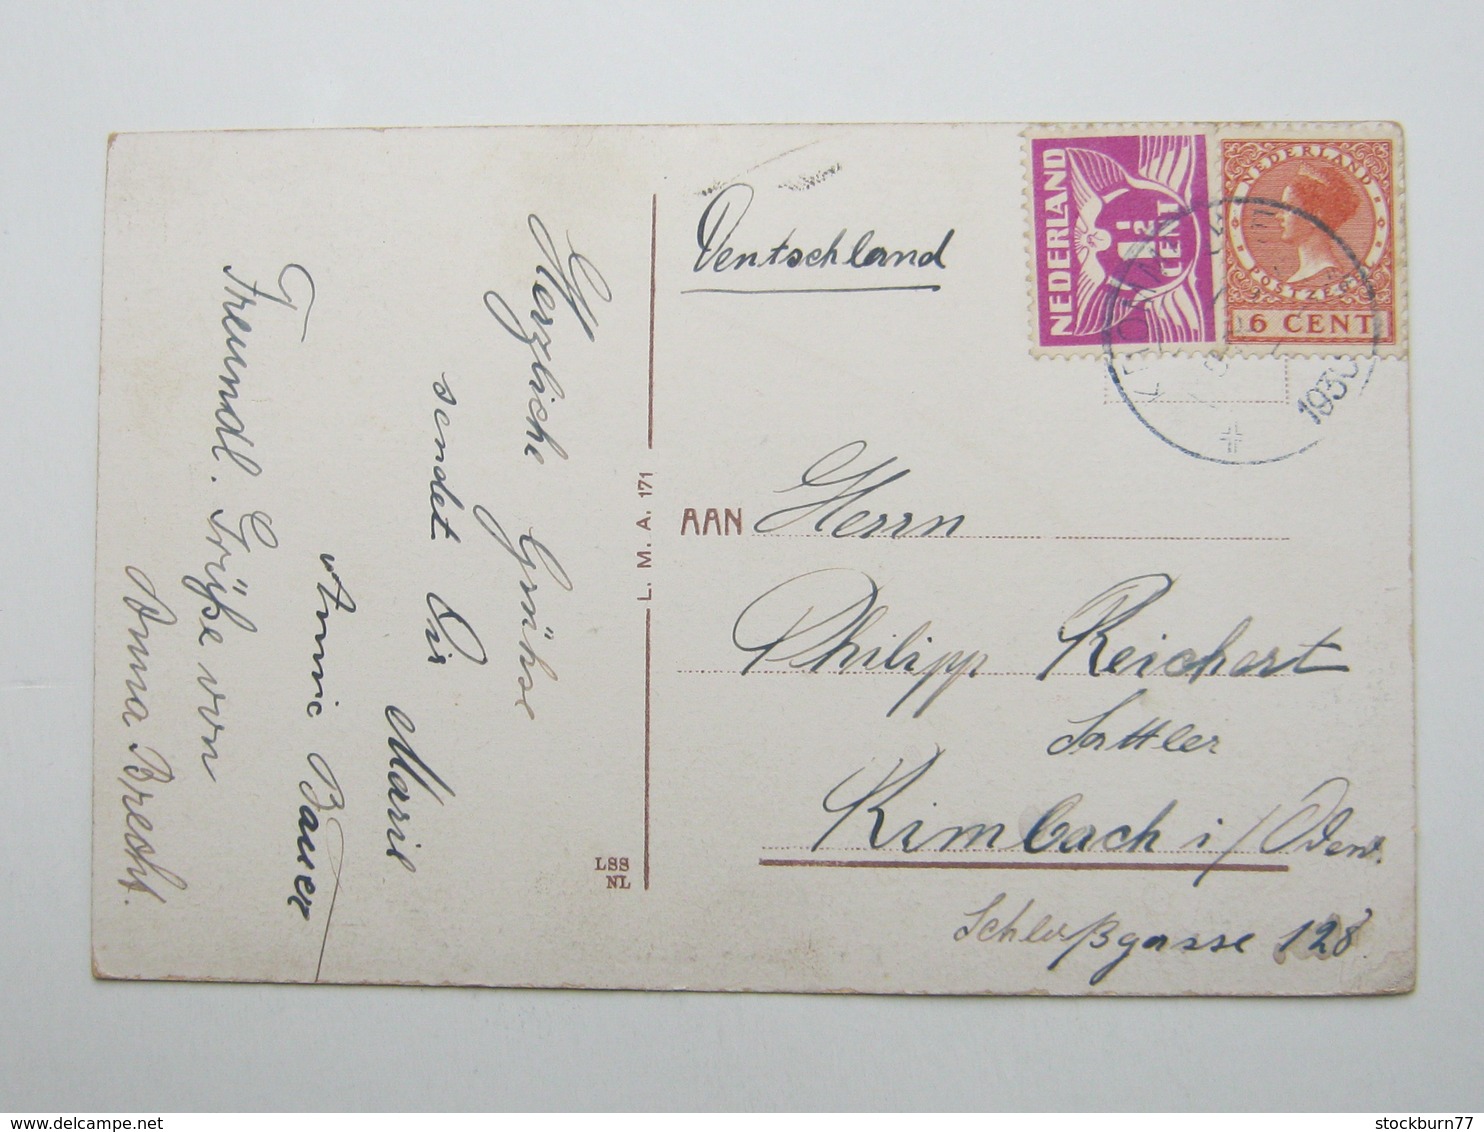 Herzliche Grühse
sendet Dir Marie
Annie Bauer
Freundl. Grüße von
Anna Brecht.
L. M. A. 171
LSS
NL
Deutschland
NEDERLAND
1½
CENT
NEDERLAND
POSTZEGEL
6 CENT
1930
AAN Herrn
Philipp Reichert
Sattler
Kimbach i/Odenw.
Schloßgasse 128
stockburn77